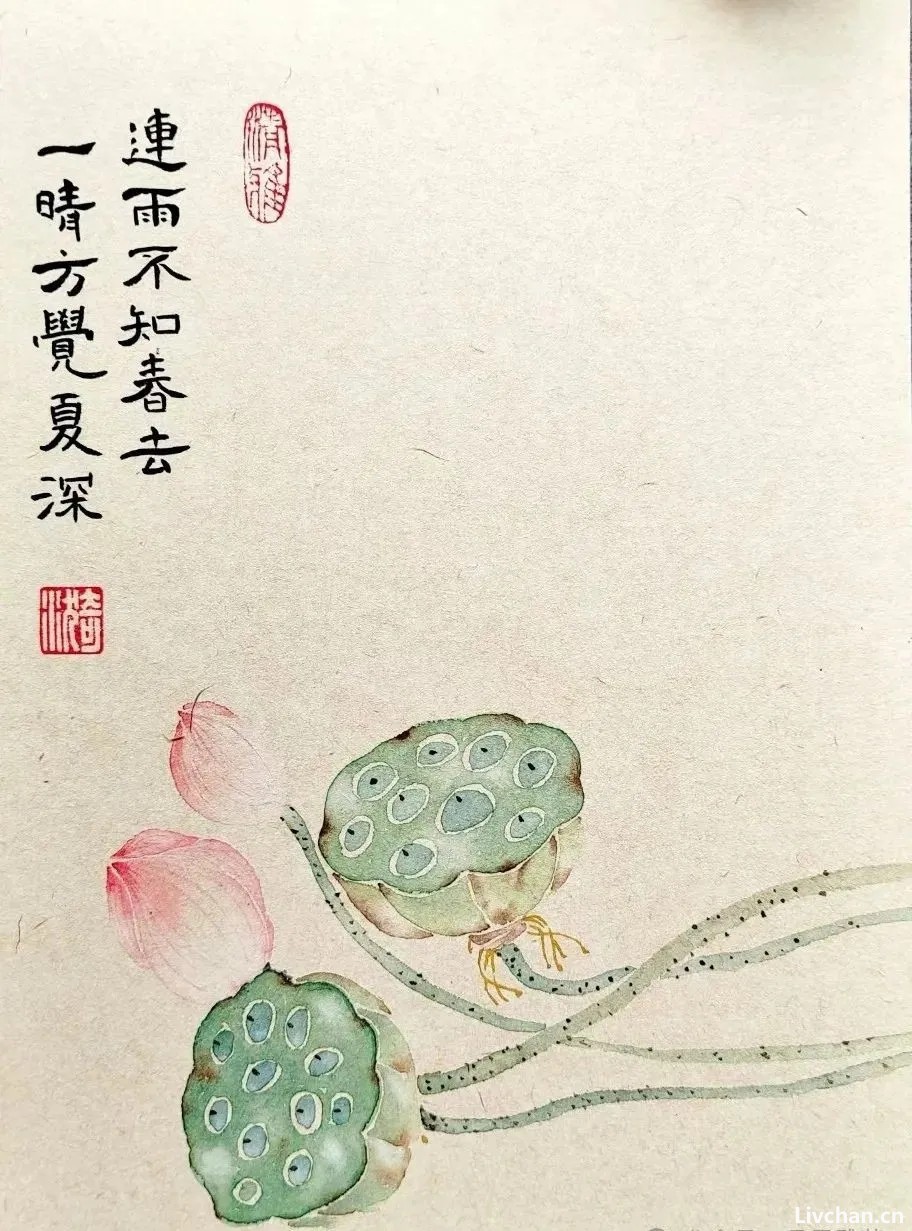 清雅
連雨不知春去
一晴方覺夏深
Livchan.cn